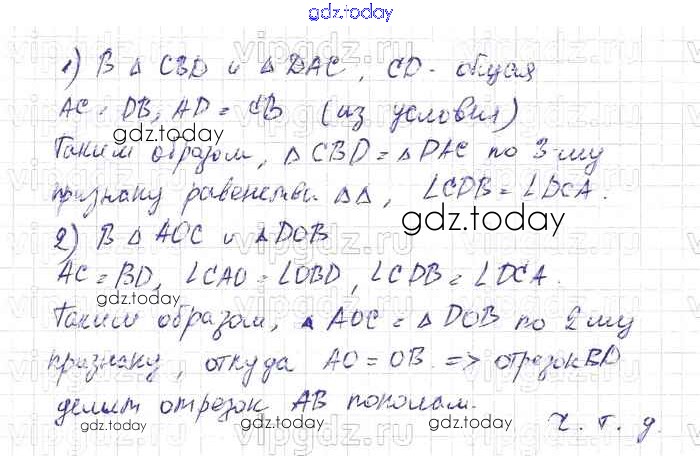 gdz.today
1) В △ CBD и △ DAC, CD - общая
AC = DB, AD = CB (из условия)
gdz.today
Таким образом, △ CBD = △ DAC по 3-му
признаку равенства △△, ∠CDB = ∠DCA.
gdz.today
2) В △ AOC и △ DOB
AC = BD, ∠CAO = ∠OBD, ∠CDB = ∠DCA.
gdz.today
Таким образом, △ AOC = △ DOB по 2му
признаку, откуда AO = OB. => отрезок BD
gdz.today
делит отрезок AB пополам.
ч. т. д.
gdz.today
gdz.today